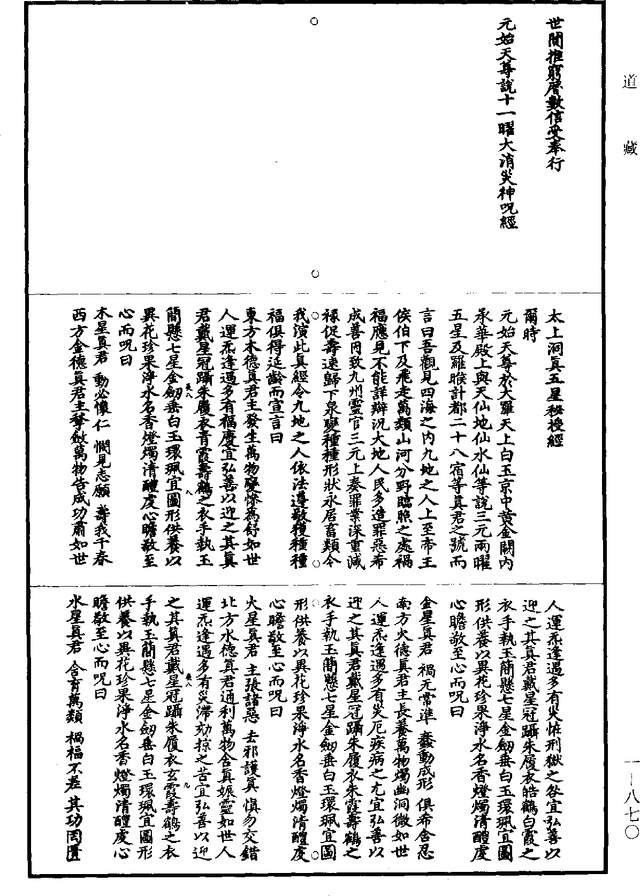 道藏
世間推窮曆數信受奉行
元始天尊說十一曜大消災神呪經
太上洞真五星秘授經
爾時
元始天尊於大羅天上白玉京中黃金闕內
承華殿上與天仙地仙水仙等說三元兩曜
五星及羅睺計都二十八宿等真君之號而
言曰吾觀見四海之內九地之人上至帝王
侯伯下及飛走萬類山河分野臨照之處禍
福應見不能詳辦況大地人民多造罪惡希
成善因致九州靈官三元上奏罪業深重減
祿促壽速歸下泉變種種形狀永居畜類今
我演此真經令九地之人依法遵敬獲種種
福俱得延齡而宣言曰
東方木德真君主發生萬物變慘為舒如世
人運炁逢遇多有福慶宜弘善以迎之其真
君戴星冠躡朱履衣青霞壽鶴之衣手執玉
簡懸七星金劒垂白玉環珮宜圖形供養以
異花珍果淨水名香燈燭清醴虔心瞻敬至
心而呪曰
木星真君 動必懷仁 憫見志願 壽我千春
西方金德真君主擎斂萬物告成功肅如世
人運炁逢遇多有災怪刑獄之咎宜弘善以
迎之其真君戴星冠躡朱履衣皓鶴白霞之
衣手執玉簡懸七星金劒垂白玉環珮宜圖
形供養以異花珍果淨水名香燈燭清醴虔
心瞻敬至心而呪曰
金星真君 禍无常準 蠢動成形 俱希舍忍
南方火德真君主長養萬物燭幽洞微如世
人運炁逢遇多有災厄疾病之尤宜弘善以
迎之其真君戴星冠躡朱履衣朱霞壽鶴之
衣手執玉簡懸七星金劒垂白玉環珮宜圖
形供養以異花珍果淨水名香燈燭清醴虔
心瞻敬至心而呪曰
火星真君 主張諸惡 去邪護真 慎勿交錯
北方水德真君通利萬物含真娠靈如世人
運炁逢遇多有災滯劾掠之苦宜弘善以迎
之其真君戴星冠躡朱履衣玄霞壽鶴之衣
手執玉簡懸七星金劒垂白玉環珮宜圖形
供養以異花珍果淨水名香燈燭清醴虔心
瞻敬至心而呪曰
水星真君 含育萬類 禍福不差 其功罔匱
一—八七〇